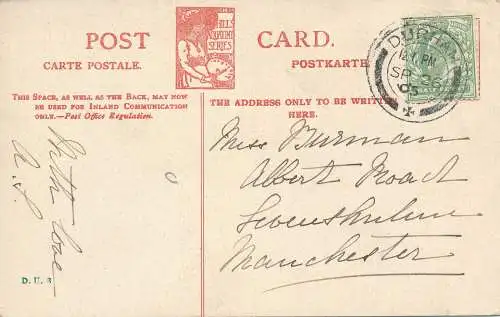 POST
CARTE POSTALE.
HILLS
ACADEMY
SERIES
CARD.
POSTKARTE
THIS SPACE, AS WELL AS THE BACK, MAY NOW
BE USED FOR INLAND COMMUNICATION
ONLY.—Post Office Regulation.
THE ADDRESS ONLY TO BE WRITTEN
HERE.
DURHAM
PM
SP
05
With love
A. S
Miss Burman
Albert Road
Levenshulme
Manchester
D. U. 8